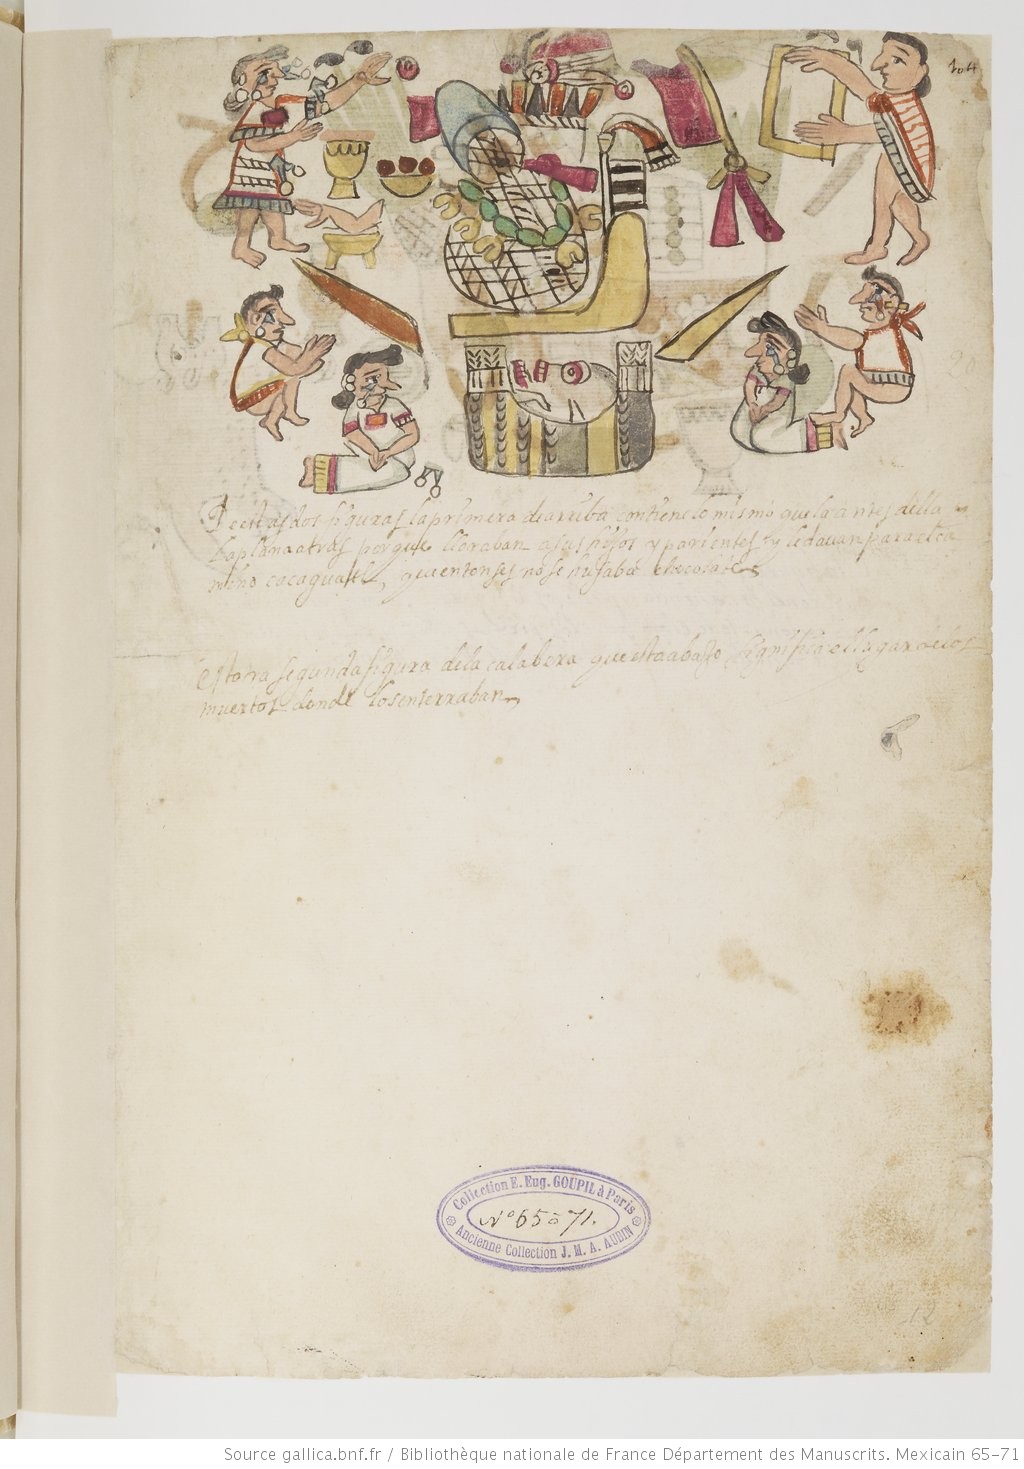 104
De estas dos figuras la primera de arriba contiene lo mismo que la antes della
la plana atras porque lloraban a sus hijos y parientes y le dauan para el ca
mino cacaguatl, que entonses no se husaba chocolate
esta otra segunda figura de la calabera que esta abajo significa el lugar de los
muertos donde los enterraban
Collection E. Eug. GOUPIL à Paris
N° 65 à 71.
Ancienne Collection J. M. A. AUBIN
12
Source gallica.bnf.fr / Bibliothèque nationale de France Département des Manuscrits. Mexicain 65-71